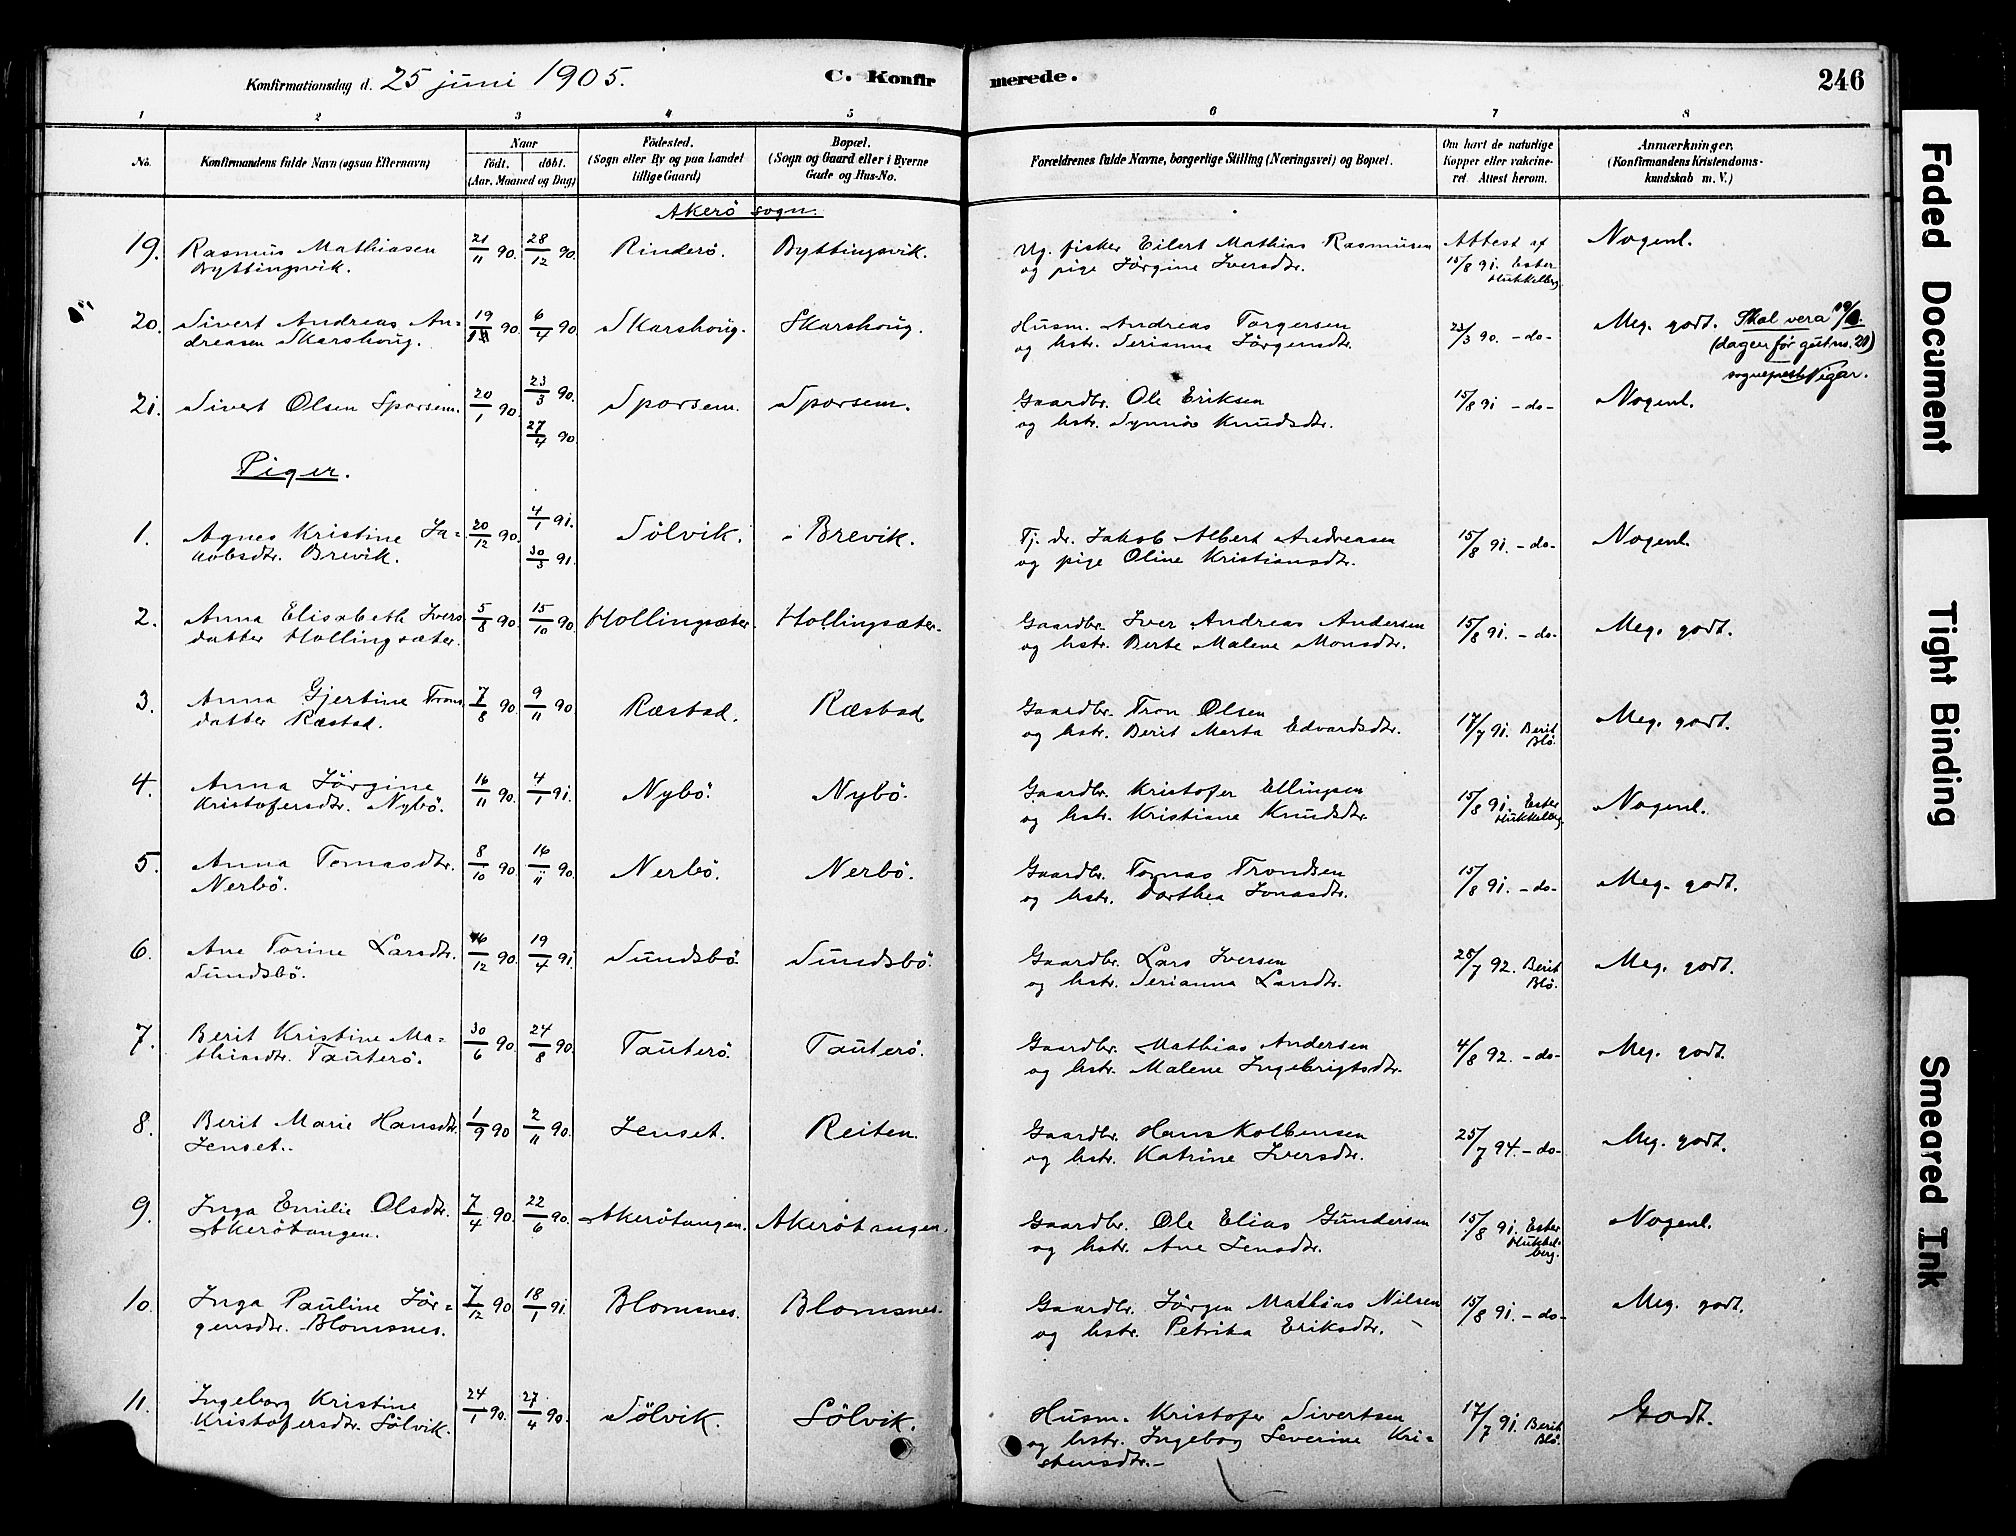 Konfirmationsdag d. 25 juni 1905. C. Konfirmerede. 246
1 2 3 4 5 6 7 8
No. Konfirmandens fulde Navn (ogsaa Efternavn) Naar født. døbt. (Aar, Maaned og Dag) Fødested. (Sogn eller By og paa Landet tillige Gaard) Bopæl. (Sogn og Gaard eller i Byerne Gade og Hus-No. Forældrenes fulde Navne, borgerlige Stilling (Næringsvei) og Bopæl. Om havt de naturlige Kopper eller vakcineret. Attest herom. Anmærkninger. (Konfirmandens Kristendomskundskab m. V.)
Akerö sogn.
19. Rasmus Mathiasen 21/11 90. 28/12 90. Rinderö. Byttingsvik. Ug. fisker Eilert Mathias Rasmusen Attest af Nogenl.
Byttingsvik. og pige Jörgine Iversdtr. 15/8 91. Ester Hukkelberg
20. Sivert Andreas An- 19/ 90. 6/4 90. Skarshoug. Skarshoug. Husm. Andreas Torgersen 23/3 90. -do- Meg. godt. Skal vera
dreasen Skarshoug. og hstr. Serianna Jörgensdtr. (dagen før gut no. 21)
sogneprest Vigar.
21. Sivert Olsen Sporsem. 20/1 90. 23/3 90. Sporsem. Sporsem. Gaardbr. Ole Eriksen 15/8 91 -do- Nogenl.
27/4 90. og hstr. Synnöv Knudsdtr.
Piger.
1. Agnes Kristine Ja- 20/12 90. 4/1 91. Sölvik. Brevik. Tj. dr. Jakob Albert Andreasen 15/8 91. -do- Nogenl.
kobsdtr. Brevik. 30/3 91. og pige Oline Kristiansdtr.
2. Anna Elisabeth Ivers 5/8 90. 15/10 90. Hollingsæter. Hollingsæter. Gaardbr. Iver Andreas Andersen 15/8 91. -do- Meg. godt.
datter Hollingsæter. og hstr. Berte Malene Monsdtr.
3. Anna Gjertine Trons 7/8 90. 9/11 90 Ræstad. Ræstad Gaardbr. Tron Olsen 17/7 91. Berit Blö. Meg. godt.
datter Ræstad. og hstr. Berit Marta Edvardsdtr.
4. Anna Jörgine 16/11 90. 4/1 91. Nybö. Nybö. Gaardbr. Kristofer Ellingsen 15/8 91. Ester Hukkelberg. Nogenl.
Kristofersdtr. Nybö. og hstr. Kristiane Knudsdtr.
5. Anna Tomasdtr. 8/10 90. 16/11 90. Nerbö. Nerbö. Gaardbr. Tomas Trondsen 15/8 91. -do- Meg. godt.
Nerbö. og hstr. Dorthea Jonasdtr.
6. Ane Torine Larsdtr. 16/12 90. 19/4 91. Sundsbö. Sundsbö. Gaardbr. Lars Iversen 25/7 92. Berit Blö. Meg. godt.
Sundsbö. og hstr. Serianna Larsdtr.
7. Berit Kristine Ma- 30/6 90. 24/8 90. Tauterö. Tauterö. Gaardbr. Mathias Andersen 4/8 92. -do- Meg. godt.
thiasdtr. Tauterö. og hstr. Malene Ingebrigtsdtr.
8. Berit Marie Hansdtr. 1/9 90 2/11 90. Jenset. Reiten. Gaardbr. Hans Kolbensen 25/7 94. -do- Meg. godt.
Jenset. og hstr. Katrine Iversdtr.
9. Inga Emilie Olsdtr. 7/4 90. 22/6 90. Akerötangen. Akerötangen. Gaardbr. Ole Elias Gundersen 15/8 91. Ester Hukkelberg. Nogenl.
Akerötangen. og hstr. Ane Jensdtr.
10. Inga Pauline Jör- 7/12 90 18/1 91. Blomsnes. Blomsnes. Gaardbr. Jörgen Mathias Nilsen 15/8 91. -do- Meg. godt.
gensdtr. Blomsnes. og hstr. Petrika Eriksdtr.
11. Ingeborg Kristine 24/1 90. 27/4 90. Sölvik. Sölvik. Husm. Kristofer Sivertsen 17/7 91. Berit Blö. Godt.
Kristofersdtr. Sölvik. og hstr. Ingebog Severine Kri-
stensdtr.
Faded Document
Tight Binding
Smeared Ink